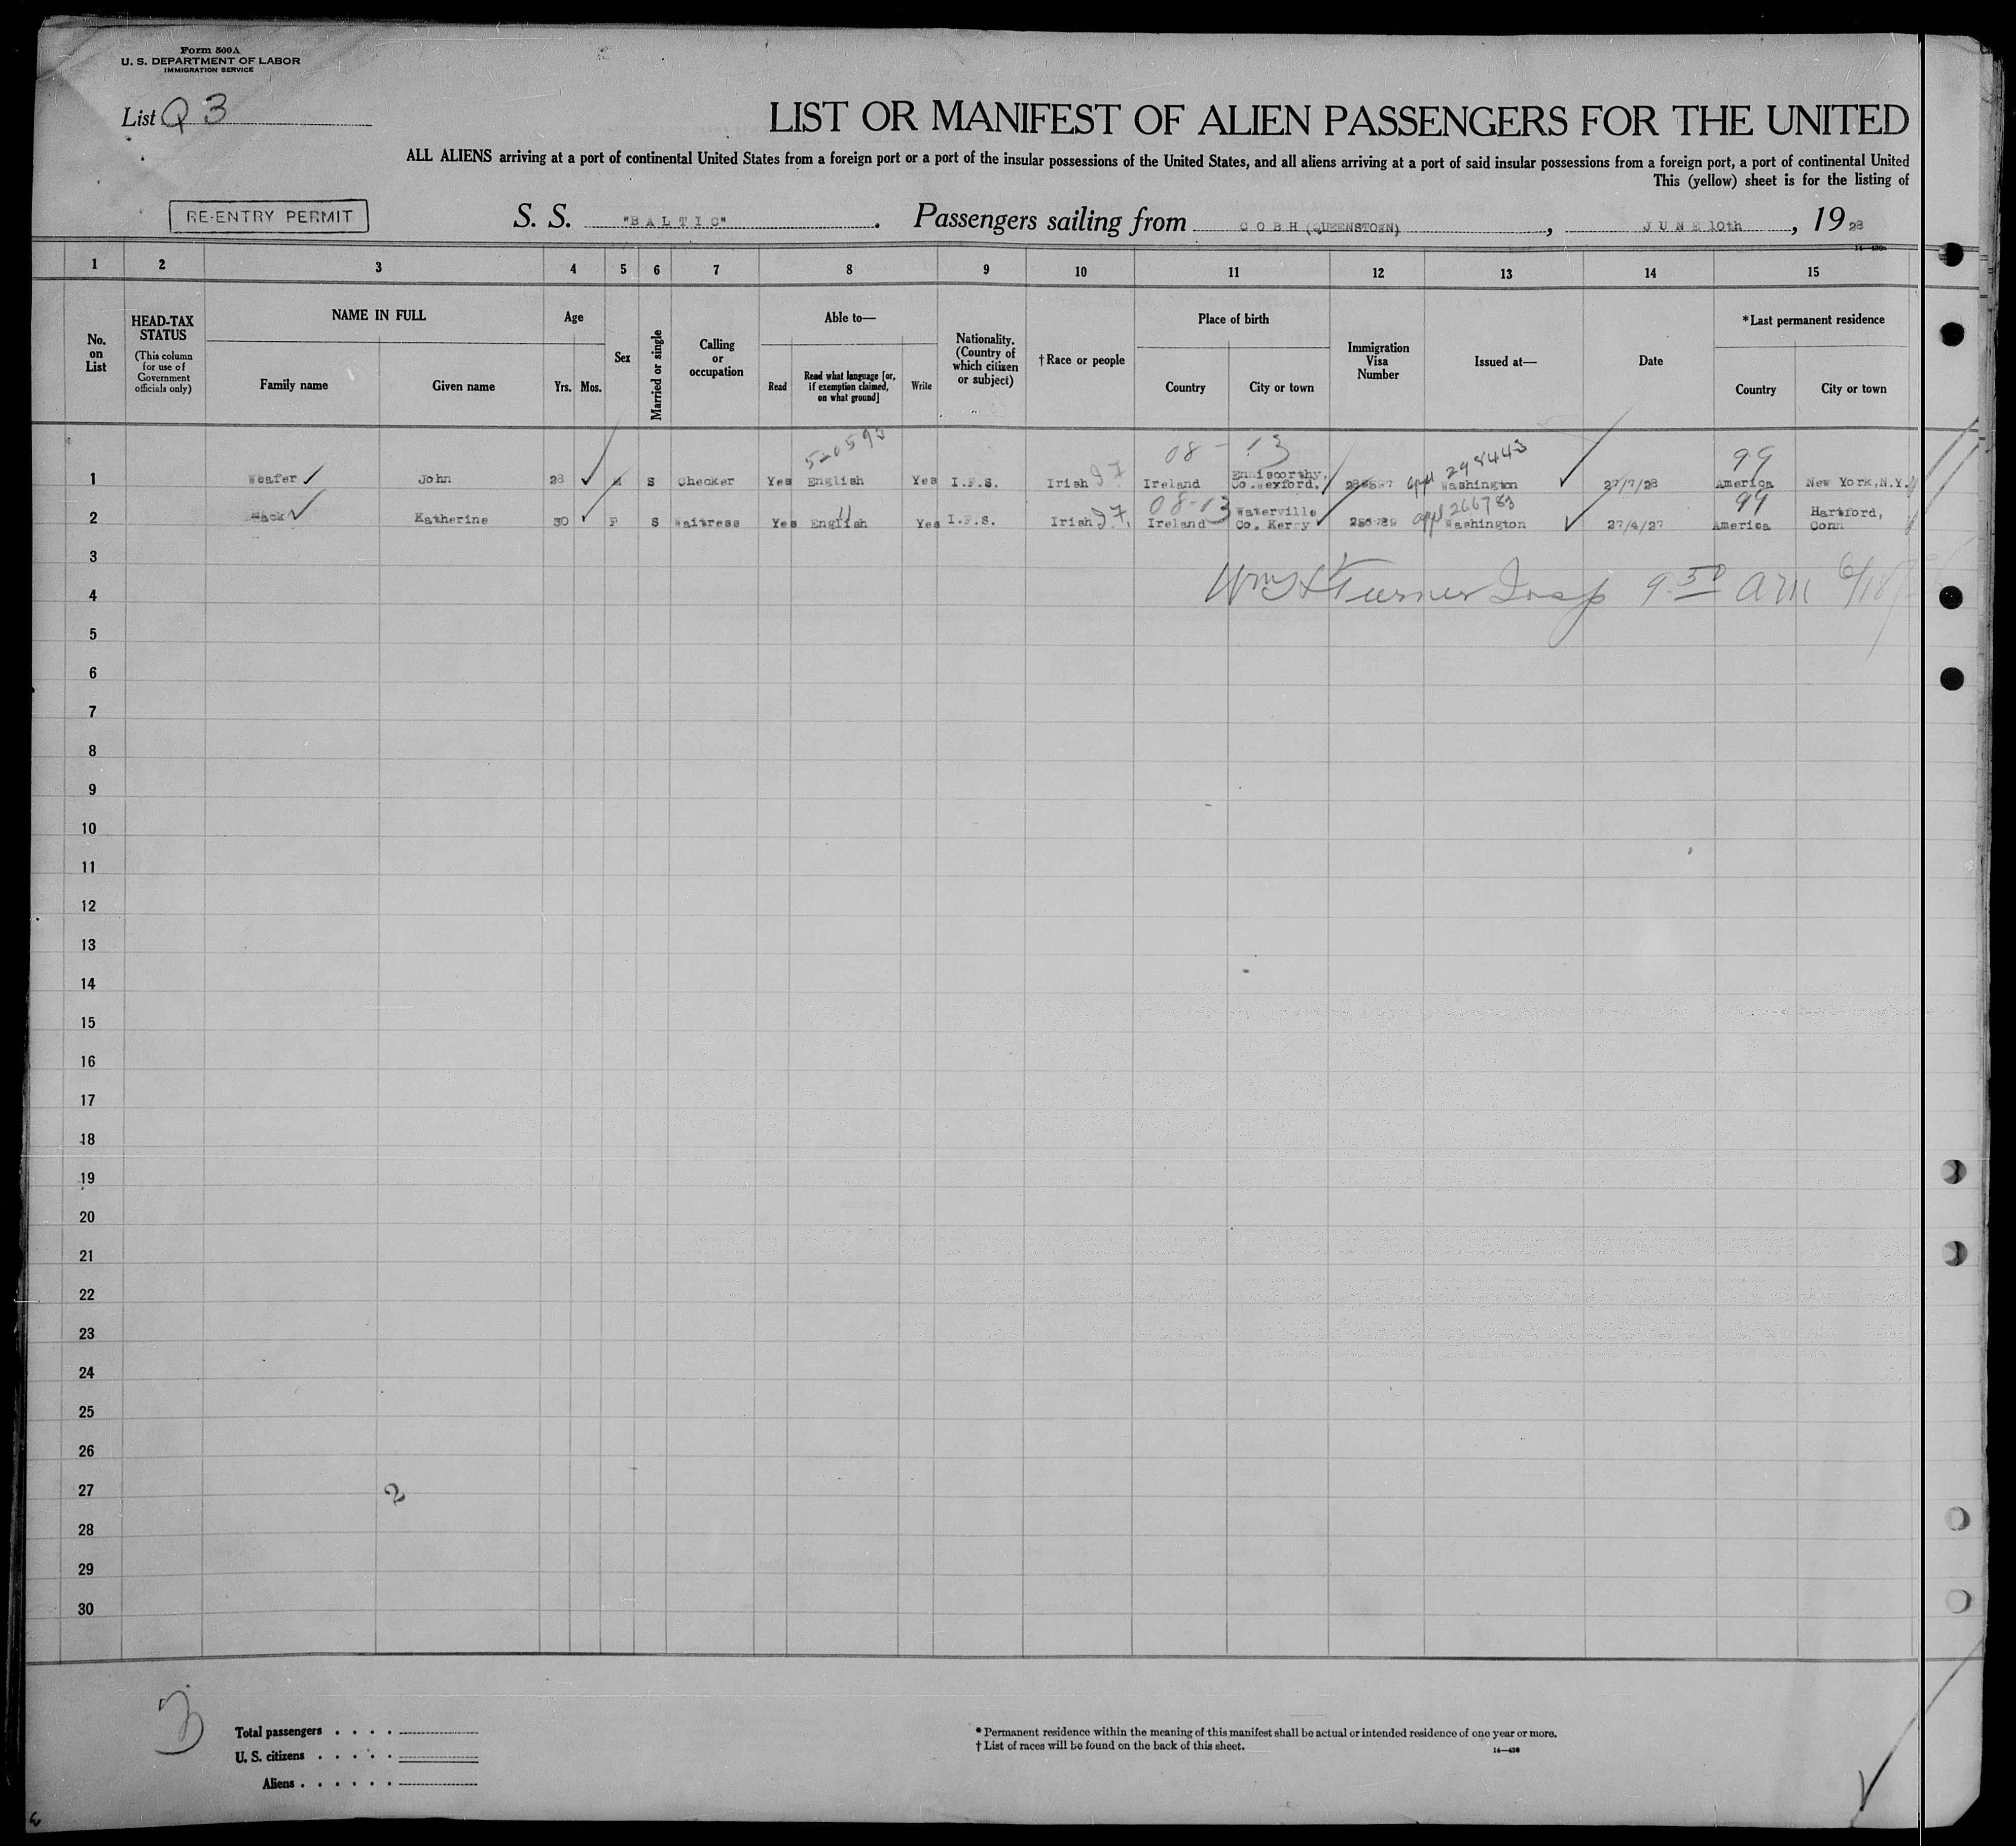 Form 500A
U. S. DEPARTMENT OF LABOR
IMMIGRATION SERVICE
List Q 3
LIST OR MANIFEST OF ALIEN PASSENGERS FOR THE UNITED
ALL ALIENS arriving at a port of continental United States from a foreign port or a port of the insular possessions of the United States, and all aliens arriving at a port of said insular possessions from a foreign port, a port of continental United
This (yellow) sheet is for the listing of
RE-ENTRY PERMIT
S. S. "BALTIC". Passengers sailing from COBH (QUEENSTOWN), JUNE 10th, 1928
1 2 3 4 5 6 7 8 9 10 11 12 13 14 15
No. on List
HEAD-TAX STATUS
(This column for use of Government officials only)
NAME IN FULL
Family name Given name
Age
Yrs. Mos.
Sex
Married or single
Calling or occupation
Able to—
Read Read what language [or, if exemption claimed, on what ground] Write
Nationality. (Country of which citizen or subject)
†Race or people
Place of birth
Country City or town
Immigration Visa Number
Issued at—
Date
*Last permanent residence
Country City or town
520593 08 - 13 298443 99
1 Weafer John 28 M S Checker Yes English Yes I.F.S. Irish 27 Ireland Enniscorthy, Co.Wexford. appl Washington 27/7/28 America New York,N.Y.
08-13 266783 99
2 Mack Katherine 30 F S Waitress Yes English Yes I.F.S. Irish 27. Ireland Waterville Co. Kerry appl Washington 27/4/27 America Hartford, Conn
3
Wm H Turner Insp 9.50 am 6/18/
4
5
6
7
8
9
10
11
12
13
14
15
16
17
18
19
20
21
22
23
24
25
26
27
2
28
29
30
3
Total passengers . . . .
U. S. citizens . . . . .
Aliens . . . . . .
* Permanent residence within the meaning of this manifest shall be actual or intended residence of one year or more.
† List of races will be found on the back of this sheet.
14—430